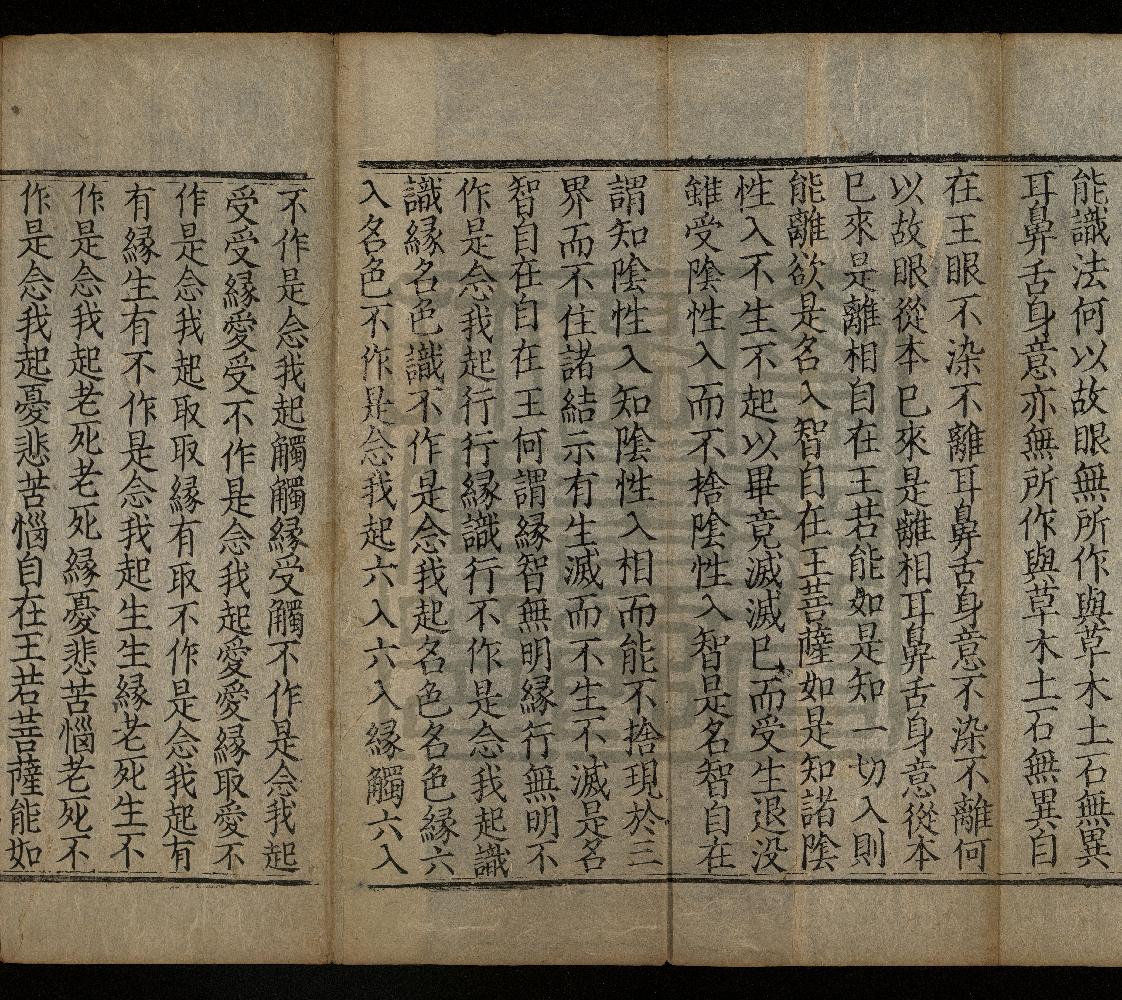 能識法何以故眼無所作與草木土石無異
耳鼻舌身意亦無所作與草木土石無異自
在王眼不染不離耳鼻舌身意不染不離何
以故眼從本已來是離相耳鼻舌身意從本
已來是離相自在王若能如是知一切入則
能離欲是名入智自在王菩薩如是知諸陰
性入不生不起以畢竟滅滅已而受生退没
雖受陰性入而不捨陰性入智是名智自在
謂知陰性入知陰性入相而能不捨現於三
界而不住諸結示有生滅而不生不滅是名
智自在自在王何謂緣智無明緣行無明不
作是念我起行行緣識行不作是念我起識
識緣名色識不作是念我起名色名色緣六
入名色不作是念我起六入六入緣觸六入
不作是念我起觸觸緣受觸不作是念我起
受受緣愛受不作是念我起愛愛緣取愛不
作是念我起取取緣有取不作是念我起有
有緣生有不作是念我起生生緣老死生不
作是念我起老死老死緣憂悲苦惱老死不
作是念我起憂悲苦惱自在王若菩薩能如